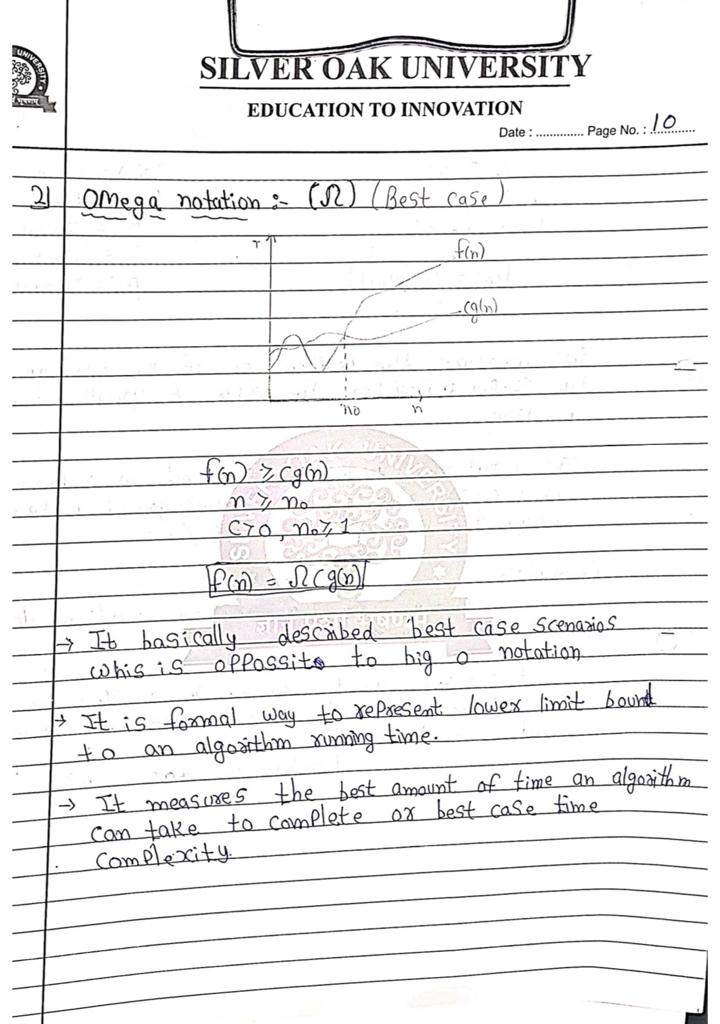 UNIVERSITY
SILVER OAK UNIVERSITY
EDUCATION TO INNOVATION
Date : .............. Page No. : 10
2] OMega notation :- (Ω) (Best case)
T
f(n)
cg(n)
n0 n
f(n) ≥ cg(n)
n ≥ n0
C>0, n0 ≥ 1
f(n) = Ω(g(n)
→ It basically described best case scenarios
whis is oppossite to big o notation
→ It is formal way to represent lower limit bound
to an algorithm running time.
→ It measures the best amount of time an algorithm
can take to complete or best case time
complexity.